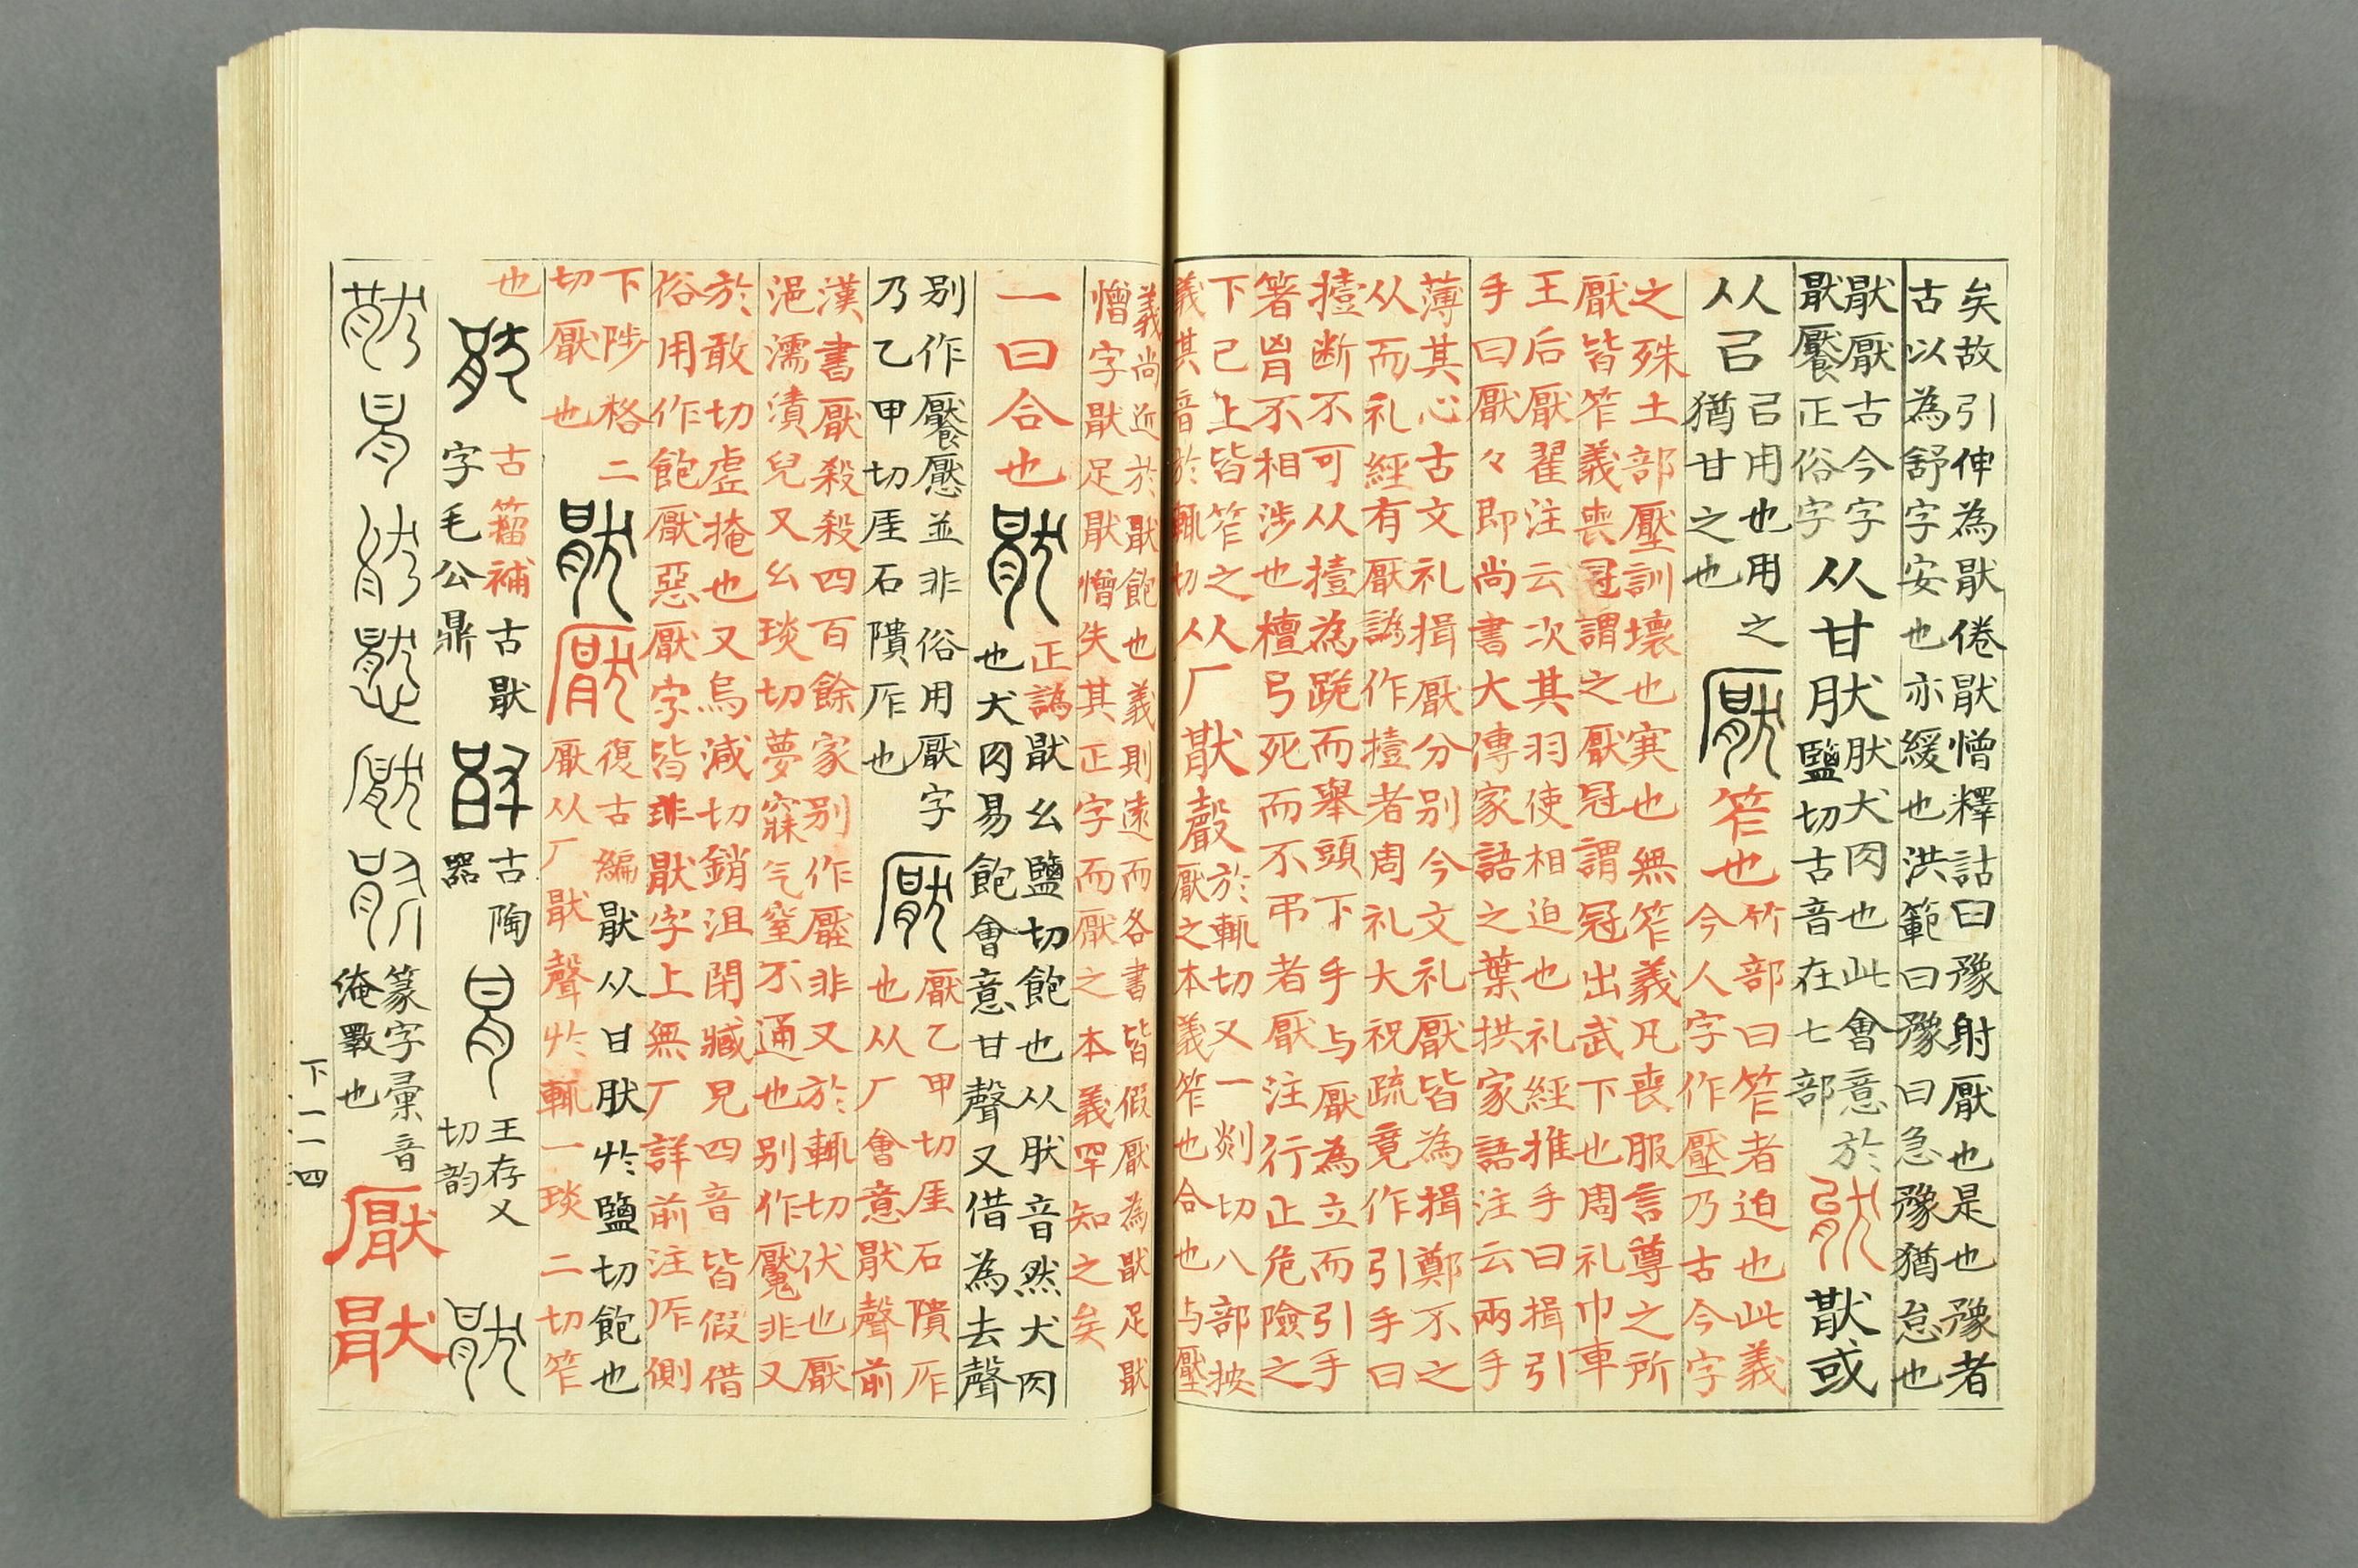 矣故引伸為猒倦猒憎釋詁曰豫射厭也是也豫者
古以為舒字安也亦緩也洪範曰豫曰急豫猶怠也
猒厭古今字
猒饜正俗字
从甘肰
肰犬肉也此會意於
鹽切古音在七部
猒或
从㠯
㠯用也用之
猶甘之也
厭
笮也
竹部曰笮者迫也此義
今人字作壓乃古今字
之殊土部壓訓壞也𡨄也無笮義凡喪服言尊之所
厭皆笮義喪冠謂之厭冠謂冠出武下也周礼巾車
王后厭翟注云次其羽使相迫也礼經推手曰揖引
手曰厭々即尚書大傳家語之葉拱家語注云兩手
薄其心古文礼揖厭分別今文礼厭皆為揖鄭不之
从而礼經有厭譌作擪者周礼大祝疏竟作引手曰
擪断不可从擪為跪而舉頭下手与厭為立而引手
箸胷不相涉也檀弓死而不弔者厭注行正危險之
下己上皆笮之
義其音於輒切
从厂猒聲
於輒切又一剡切八部按
厭之本義笮也合也与壓
義尚近於猒飽也義則遠而各書皆假厭為猒足猒
憎字猒足猒憎失其正字而厭之本義罕知之矣
一曰合也
猒
正譌猒幺鹽切飽也从肰音然犬肉
也犬肉易飽會意甘聲又借為去聲
別作饜懕並非俗用厭字
乃乙甲切厓石隤厏也
厭
厭乙甲切厓石隤厏
也从厂會意猒聲前
漢書厭殺殺四百餘家別作壓非又於輒切伏也厭
浥濡漬皃又幺琰切夢寐气窒不通也別作魘非又
於敢切虛掩也又烏減切銷沮閉藏皃四音皆假借
俗用作飽厭惡厭字皆非猒字上無厂詳前注厏側
下陟格二
切厭也
猒
厭
復古編猒从甘肰於鹽切飽也
厭从厂猒聲於輒一琰二切笮
也
古籀補古猒
字毛公鼎
古陶
器
王存乂
切韵
篆字彙音
俺斁也
厭猒
下二一四